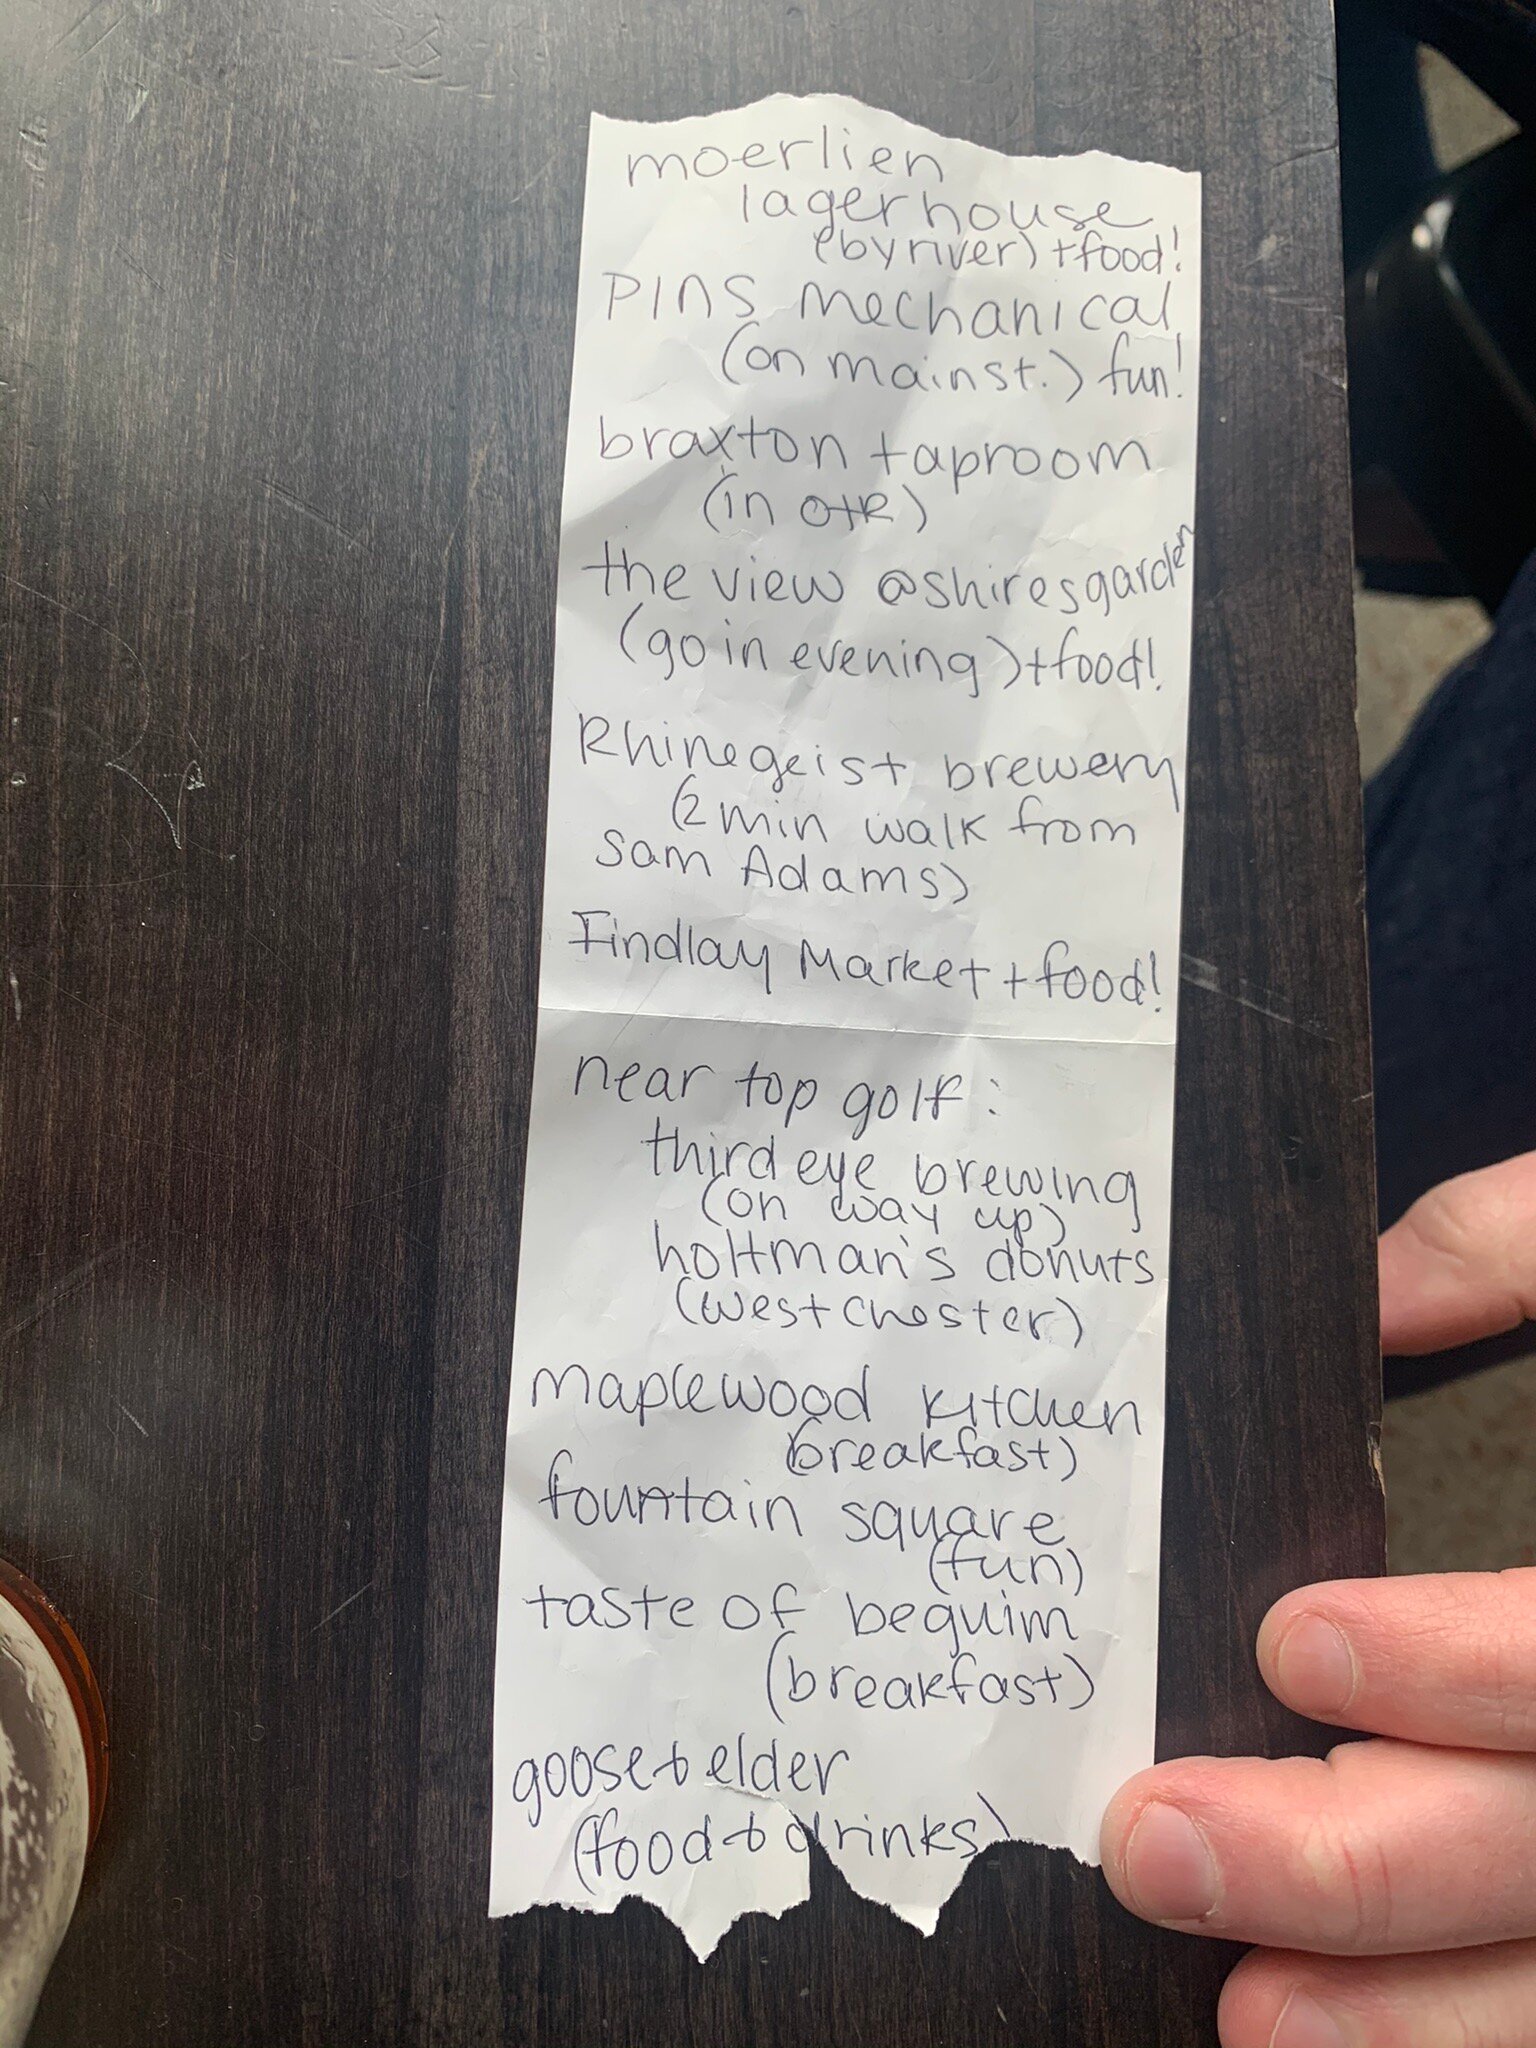 moerlien
lagerhouse
(by river) + food!
PINS mechanical
(on main st.) fun!
braxton taproom
(in OTR)
the view @ shires garden
(go in evening) + food!
Rhinegeist brewery
(2 min walk from
Sam Adams)
Findlay Market + food!
near top golf:
third eye brewing
(on way up)
holtman's donuts
(west chester)
maplewood kitchen
(breakfast)
fountain square
(fun)
taste of beguim
(breakfast)
goose & elder
(food & drinks)